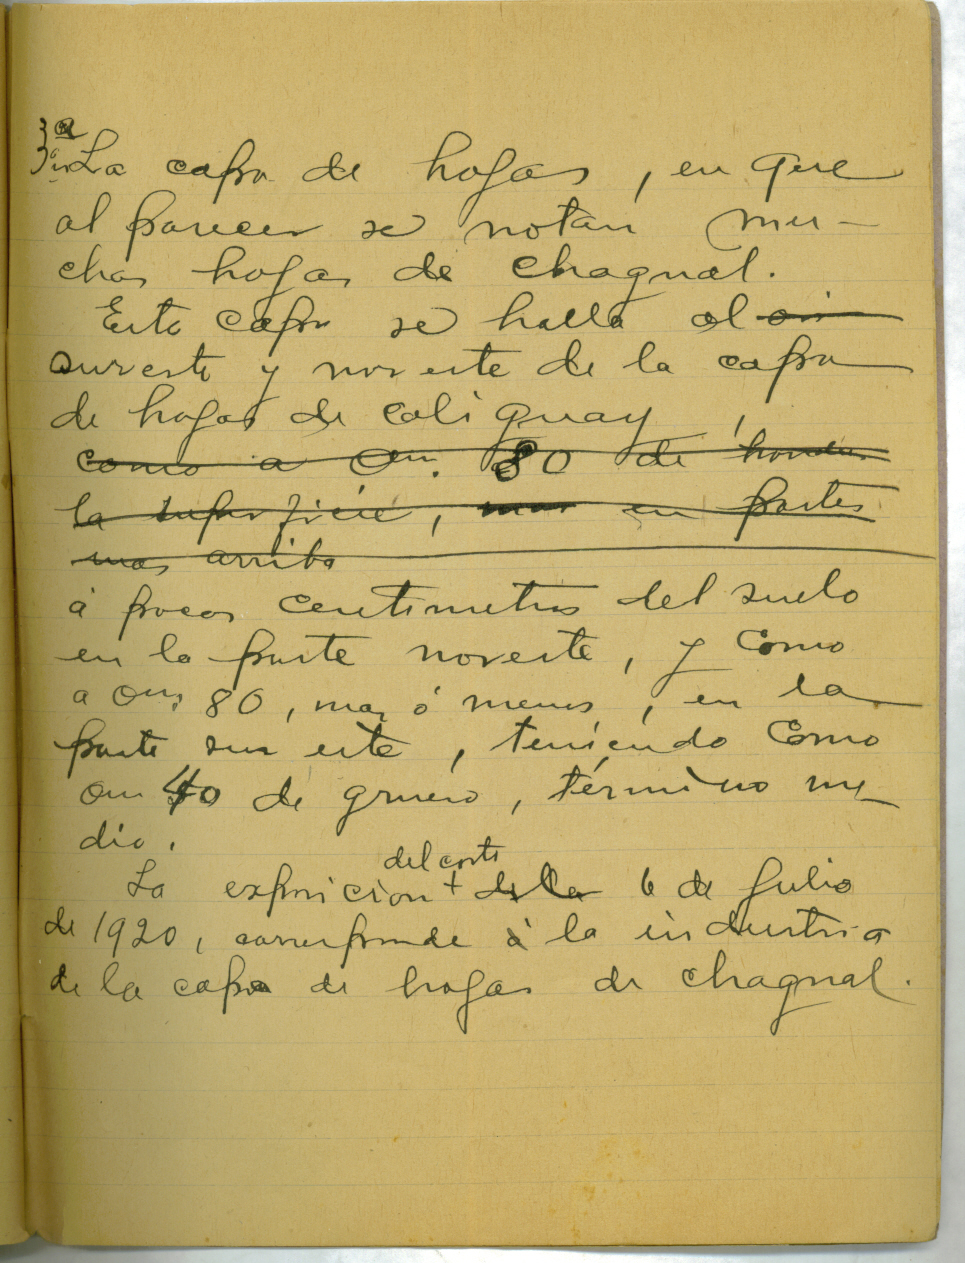 3ª La capa de hojas, en que
al parecer se notan mu-
chas hojas de chagual.
Esta capa se halla al
sureste y noreste de la capa
de hojas de coliguay,
como a 0m. 80 de honda
la superficie, mas en partes
mas arriba
á pocos centimetros del suelo
en la parte noreste, y como
a 0m. 80, mas ó menos, en la
parte sur este, teniendo como
0m 40 de grueso, término me-
dio.
del corte
La exposicion + de la 6 de Julio
de 1920, corresponde á la industria
de la capa de hojas de chagual.